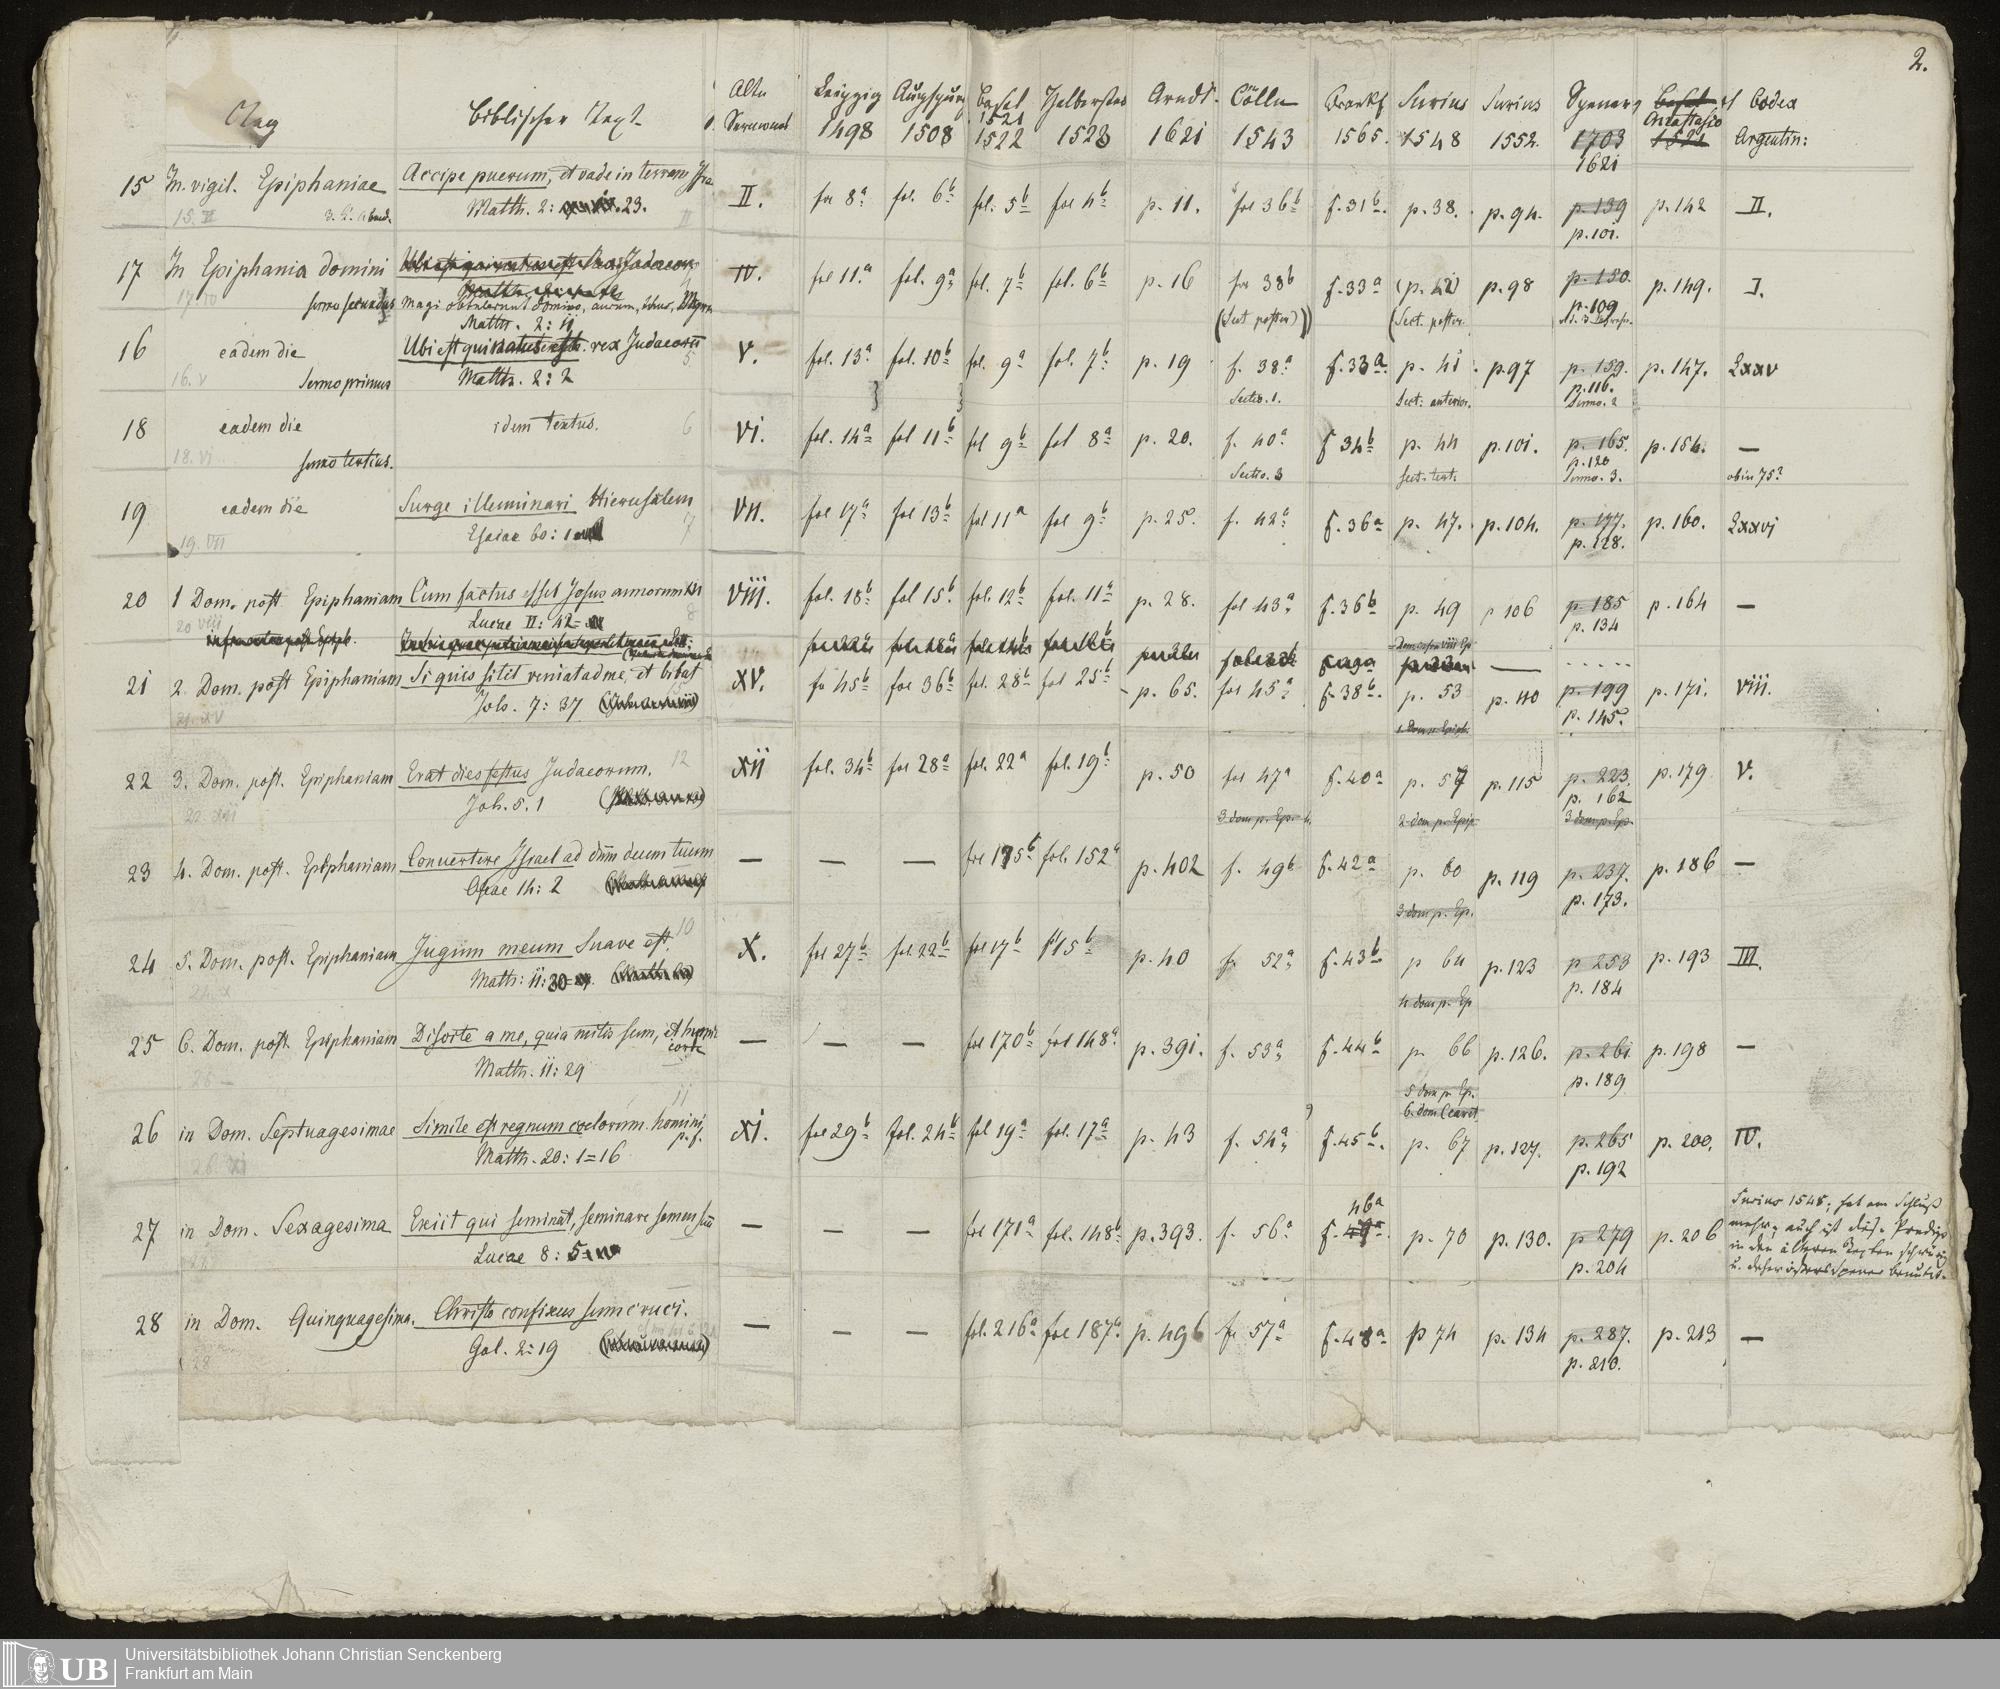 2.
Tag Biblischer Text Alte Sermones Leipzig 1498 Augspurg 1508 Basel 1521 1522 Halberstad 1523 Arndt 1621 Cölln 1543 Frankf 1565. Surius 1548 Surius 1552. Spener 1703 1621 Codex Argentin:
15 In vigil. Epiphaniae Accipe puerum, et vade in terram Isra II. fol 8a fol. 6b fol. 5b fol 4b p. 11. fol 36b f. 31b. p. 38. p. 94. p. 139 p. 142 II.
15. II Matth. 2: 23. II p. 101.
17 In Epiphania domini IV. fol 11.a fol. 9a fol. 7b fol. 6b p. 16 fol 38b f. 33a (p. 42) p. 98 p. 150. p. 149. I.
17. IV sermo secundus Magi obtulerunt domino, aurum, thus, Myrra p. 109
Matth. 2: 11 (Sect poster) (Sect. poster
16 eadem die Ubi est qui natus est rex Judaeoru V. fol. 13a fol. 10b fol. 9a fol. 7b p. 19 f. 38a f. 33a. p. 41 p. 97 p. 159. p. 147. Lxxv
16. V sermo primus Matth. 2: 2 5. Sectio. 1. Sect: anterior. p. 116. Sermo. 2
18 eadem die idem textus. 6 VI. fol. 14a fol 11b fol 9b fol 8a p. 20. f. 40a f 34b p. 44 p. 101. p. 165. p. 154. —
18. VI sermo tertius. Sectio. 3 sect. tert. p. 120 Sermo. 3. ob in 75?
19 eadem die Surge illuminari Hierusalem VII. fol 17a fol 13b fol 11a fol 9b p. 25. f. 42a f. 36a p. 47. p. 104. p. 177. p. 160. Lxxvj
19. VII Esaiae 60: 1 7 p. 128.
20 1 Dom. post Epiphaniam Cum factus esset Jesus annorum XII VIII. fol. 18b fol 15b fol. 12b fol. 11a p. 28. fol 43a f. 36b p. 49 p 106 p. 185 p. 164 —
20 VIII Lucae II: 42 8 p. 134
21 2. Dom. post Epiphaniam Si quis sitit veniat ad me, et bibat XV. fo 45b fol 36b fol. 28b fol 25b p. 65. fol 45a f. 38b. p. 53 p. 110 p. 199 p. 171. VIII.
21. XV Joh. 7: 37 1. Dom p. Epiph. p. 145.
22 3. Dom. post. Epiphaniam Erat dies festus Judaeorum. 12 XII fol. 34b fol 28a fol. 22a fol. 19b p. 50 fol 47a f. 40a p. 57 p. 115 p. 223. p. 179 V.
22. XII Joh. 5. 1 3 dom p. Ep. 2 dom p. Epip. p. 162 3 dom p. Ep.
23 4. Dom. post. Epiphaniam Convertere Israel ad dnm deum tuum — — — fol 175b fol. 152a p. 402 f. 49b f. 42a p. 60 p. 119 p. 237. p. 186 —
Osiae 14: 2 3 dom p. Ep. p. 173.
24 5. Dom. post. Epiphaniam Jugum meum suave est. 10 X. fol 27b fol. 22b fol 17b f 15b p. 40 fo 52a f. 43b p 64 p. 123 p 253 p. 193 III.
24. X Matth: 11: 30 4 dom p. Ep p. 184
25 6. Dom. post. Epiphaniam Discite a me, quia mitis sum, et humil — — — fol 170b fol 148a p. 391. f. 53a f. 44b p. 66 p. 126. p. 261 p. 198 —
25 — corde
Matth. 11: 29 5 dom p. Ep. p. 189
6. dom Caret.
26 in Dom. Septuagesimae Simile est regnum coelorum homini XI. fol 29b fol. 24b fol 19a fol. 17a p. 43 f. 54a f. 45b. p. 67 p. 127. p. 265 p. 200. IV.
26. XI Matth. 20: 1=16 11 p. 192
27 in Dom. Sexagesima Exiit qui seminat, seminare semen suu — — — fol 171a fol. 148b p. 393. f. 56a 46a p. 70 p. 130. p 279 p. 206
Lucae 8: 5 p. 204
Surius 1548, hat am Schluß
mehr, auch ist dies. Predigt
in den älteren Texten schwierig
28 in Dom. Quinquagesima. Christo confixus sum cruci. — — — fol. 216a fol 187a p. 496 fo 57a f. 48a p 74 p. 134 p. 287. p. 213 —
28 Gal. 2: 19 p. 210.
UB Universitätsbibliothek Johann Christian Senckenberg
Frankfurt am Main